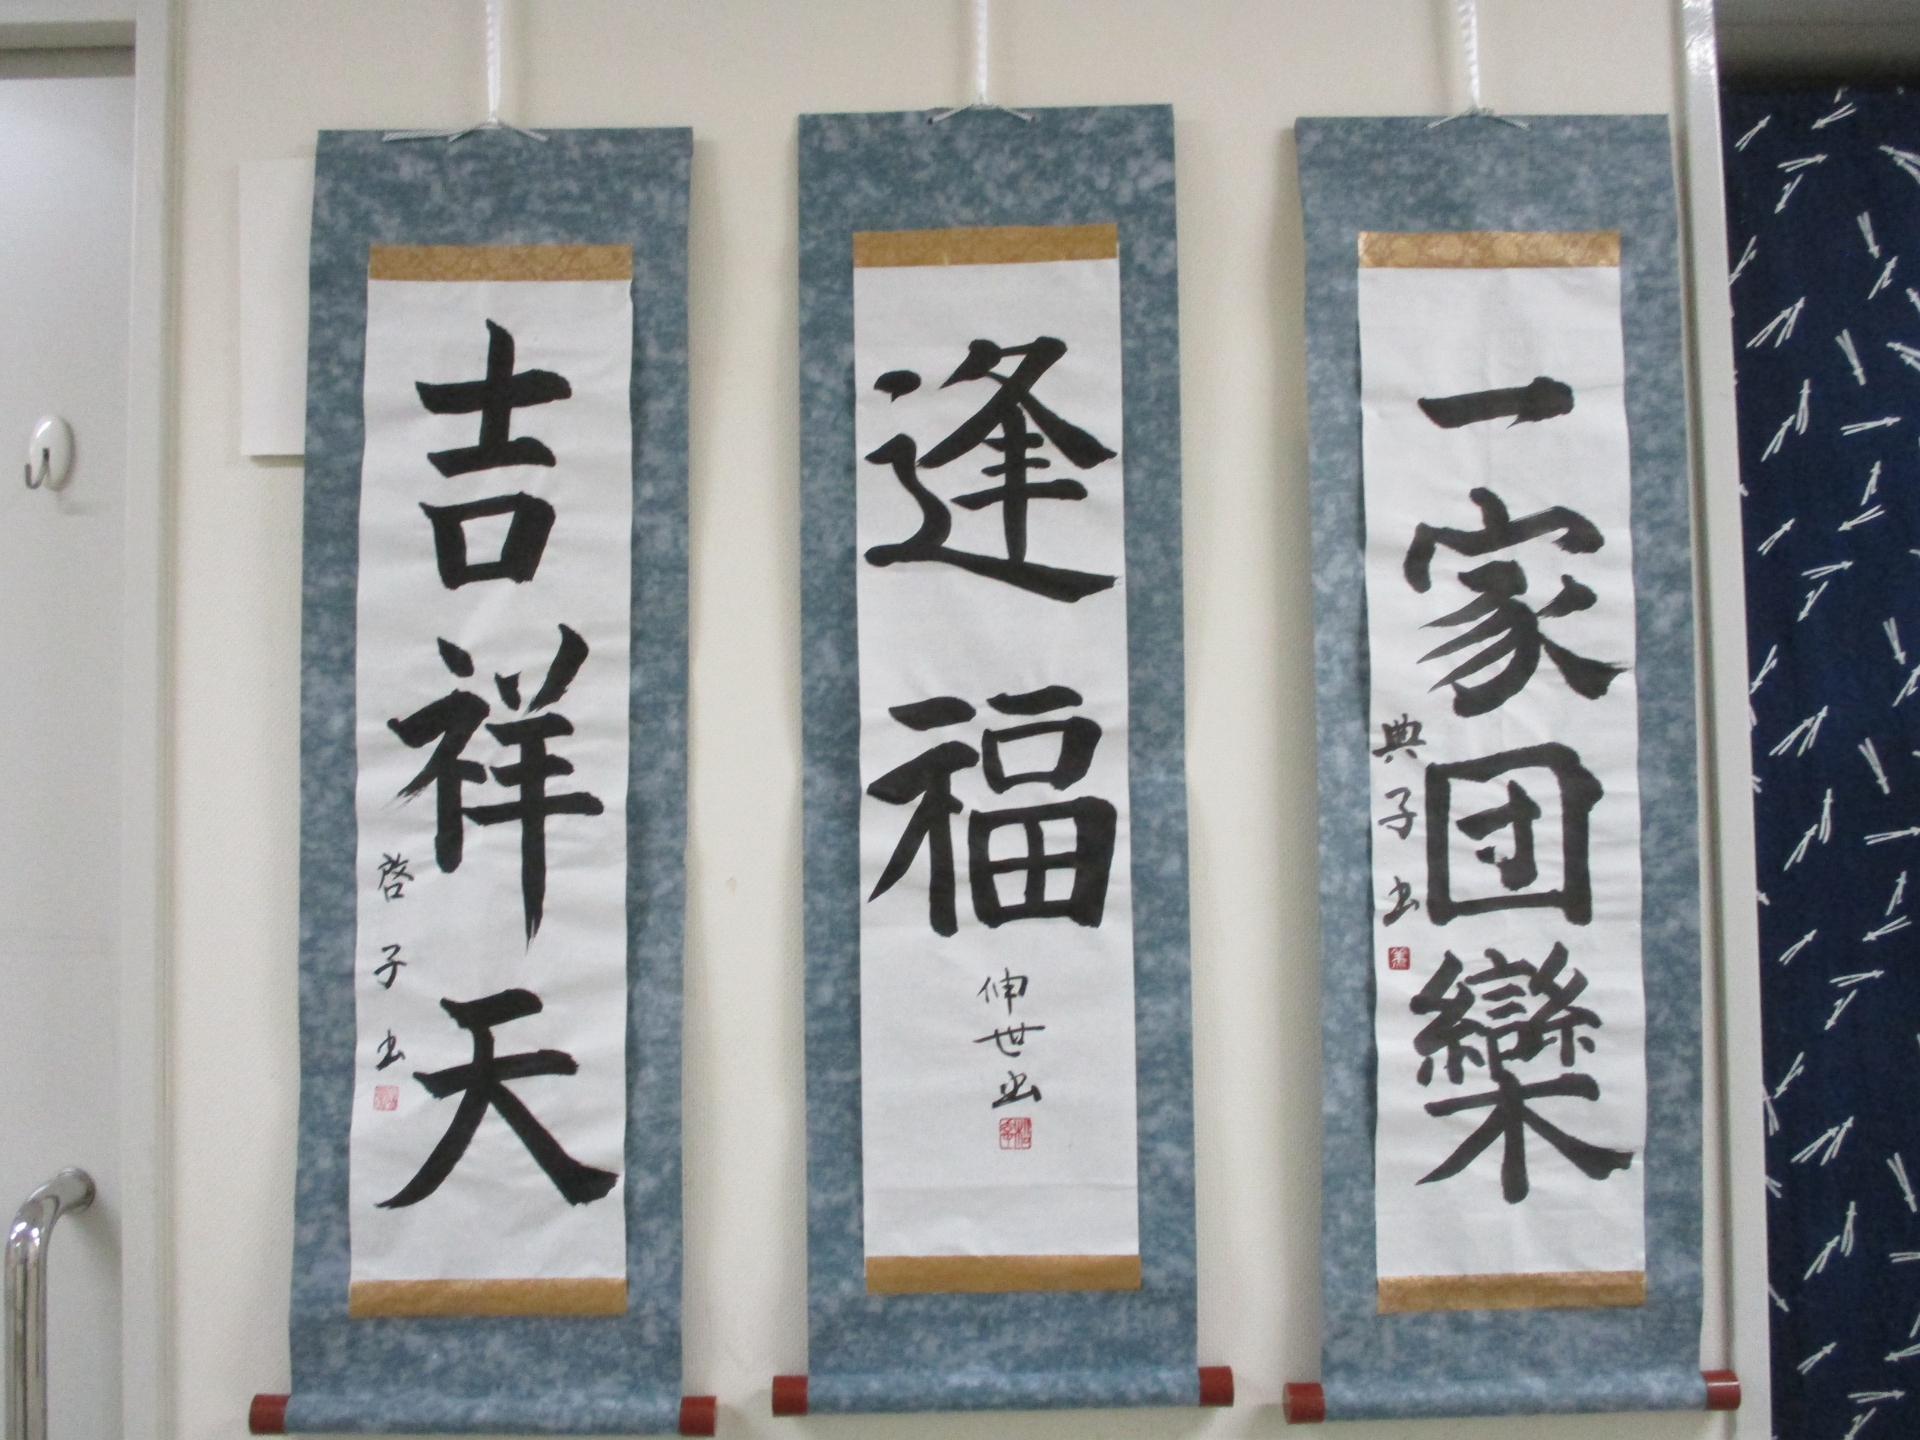 一家団欒
典子書
逢福
伸世書
吉祥天
啓子書